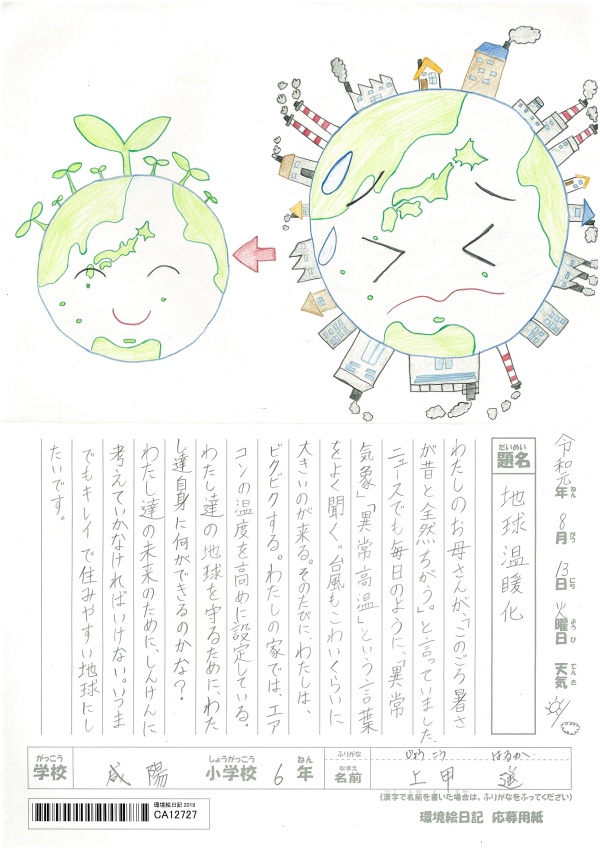 令和元年 8月 13日 火曜日 天気
ねん がつ にち ようび てんき
だいめい
題名 地球温暖化
わたしのお母さんが、「このごろ暑さ
が昔と全然ちがう。」と言っていました。
ニュースでも毎日のように、「異常
気象」「異常高温」という言葉
をよく聞く。台風もこわいくらいに
大きいのが来る。そのたびに、わたしは、
ビクビクする。わたしの家では、エア
コンの温度を高めに設定している。
わたし達の地球を守るために、わた
し達自身に何ができるのかな?
わたし達の未来のために、しんけんに
考えていかなければいけない。いつま
でもキレイで住みやすい地球にし
たいです。
がっこう しょうがっこう ねん ふりがな じょうこう はるか
学校 咸陽 小学校 6年 なまえ 名前 上甲 遥
(漢字で名前を書いた場合は、ふりがなをふってください)
環境絵日記 2019
CA12727
環境絵日記 応募用紙